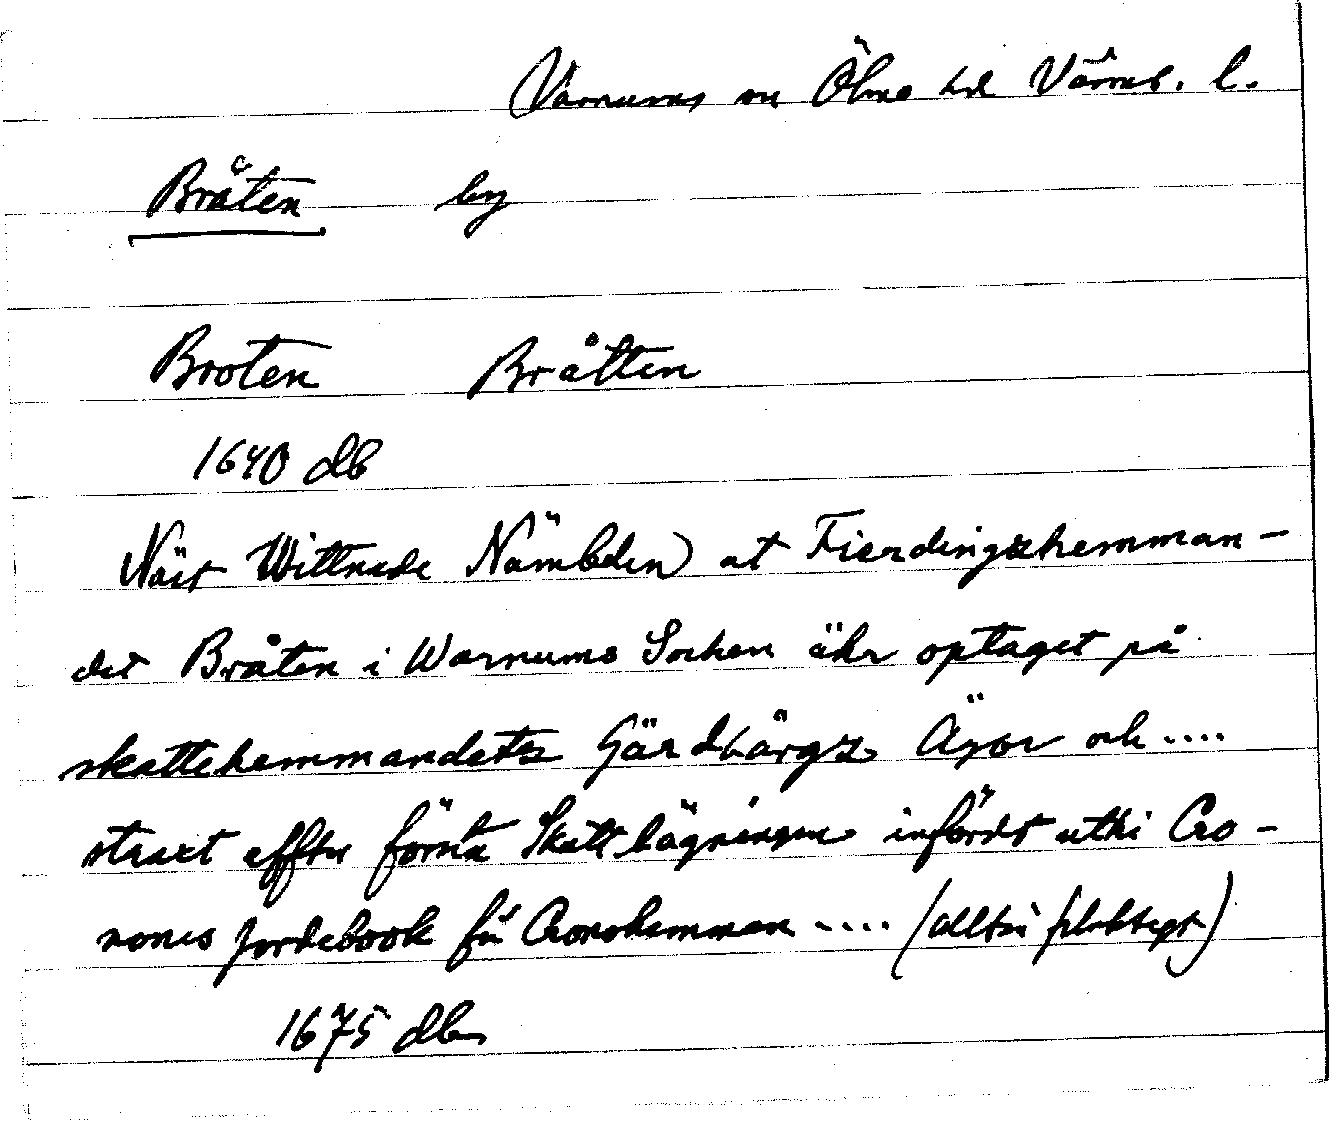 Varnums sn Ölme hd Värml. l.
Bråten by
Broten Bråtten
1640 db
Näst Wittnade Nämbden at Fierdingzhemman-
det Bråten i Warnums Sochen ähr optaget på
skattehemmandetz Gärdbärgz Ägor och ....
straxt effter första Skattlägningen infördt uthi Cro-
nones Jordebook för Cronohemman .... (alltså felaktigt)
1675 db